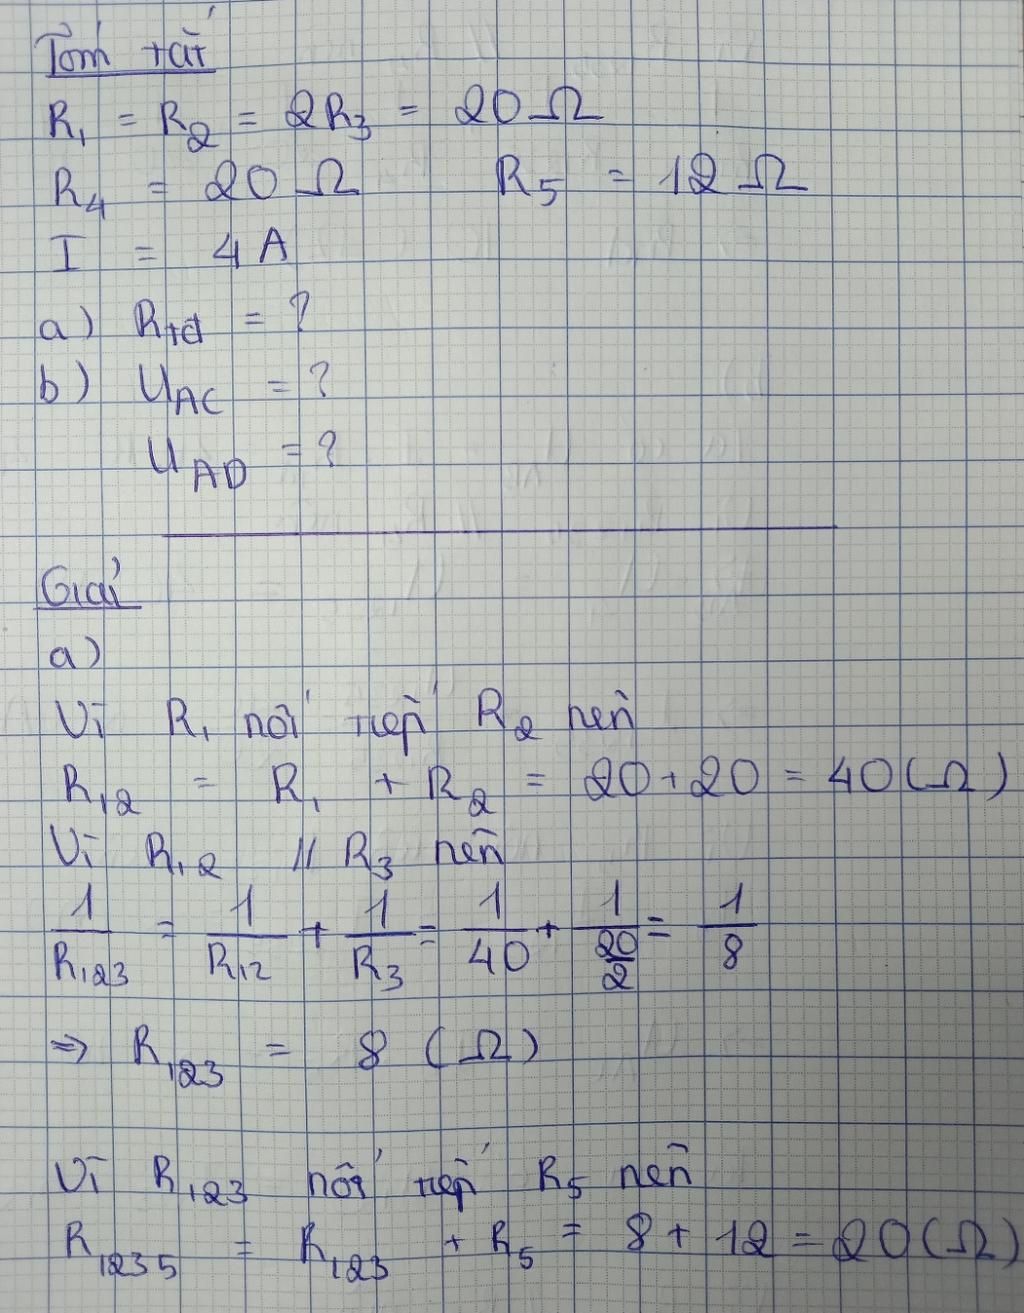 Tóm tắt
R₁ = R₂ = 2R₃ = 20 Ω
R₄ = 20 Ω R₅ = 12 Ω
I = 4 A
a) Rtđ = ?
b) UAC = ?
UAD = ?
Giải
a)
Vì R₁ nối tiếp R₂ nên
R₁₂ = R₁ + R₂ = 20 + 20 = 40 (Ω)
Vì R₁₂ // R₃ nên
1/R₁₂₃ = 1/R₁₂ + 1/R₃ = 1/40 + 1/(20/2) = 1/8
⇒ R₁₂₃ = 8 (Ω)
Vì R₁₂₃ nối tiếp R₅ nên
R₁₂₃₅ = R₁₂₃ + R₅ = 8 + 12 = 20 (Ω)